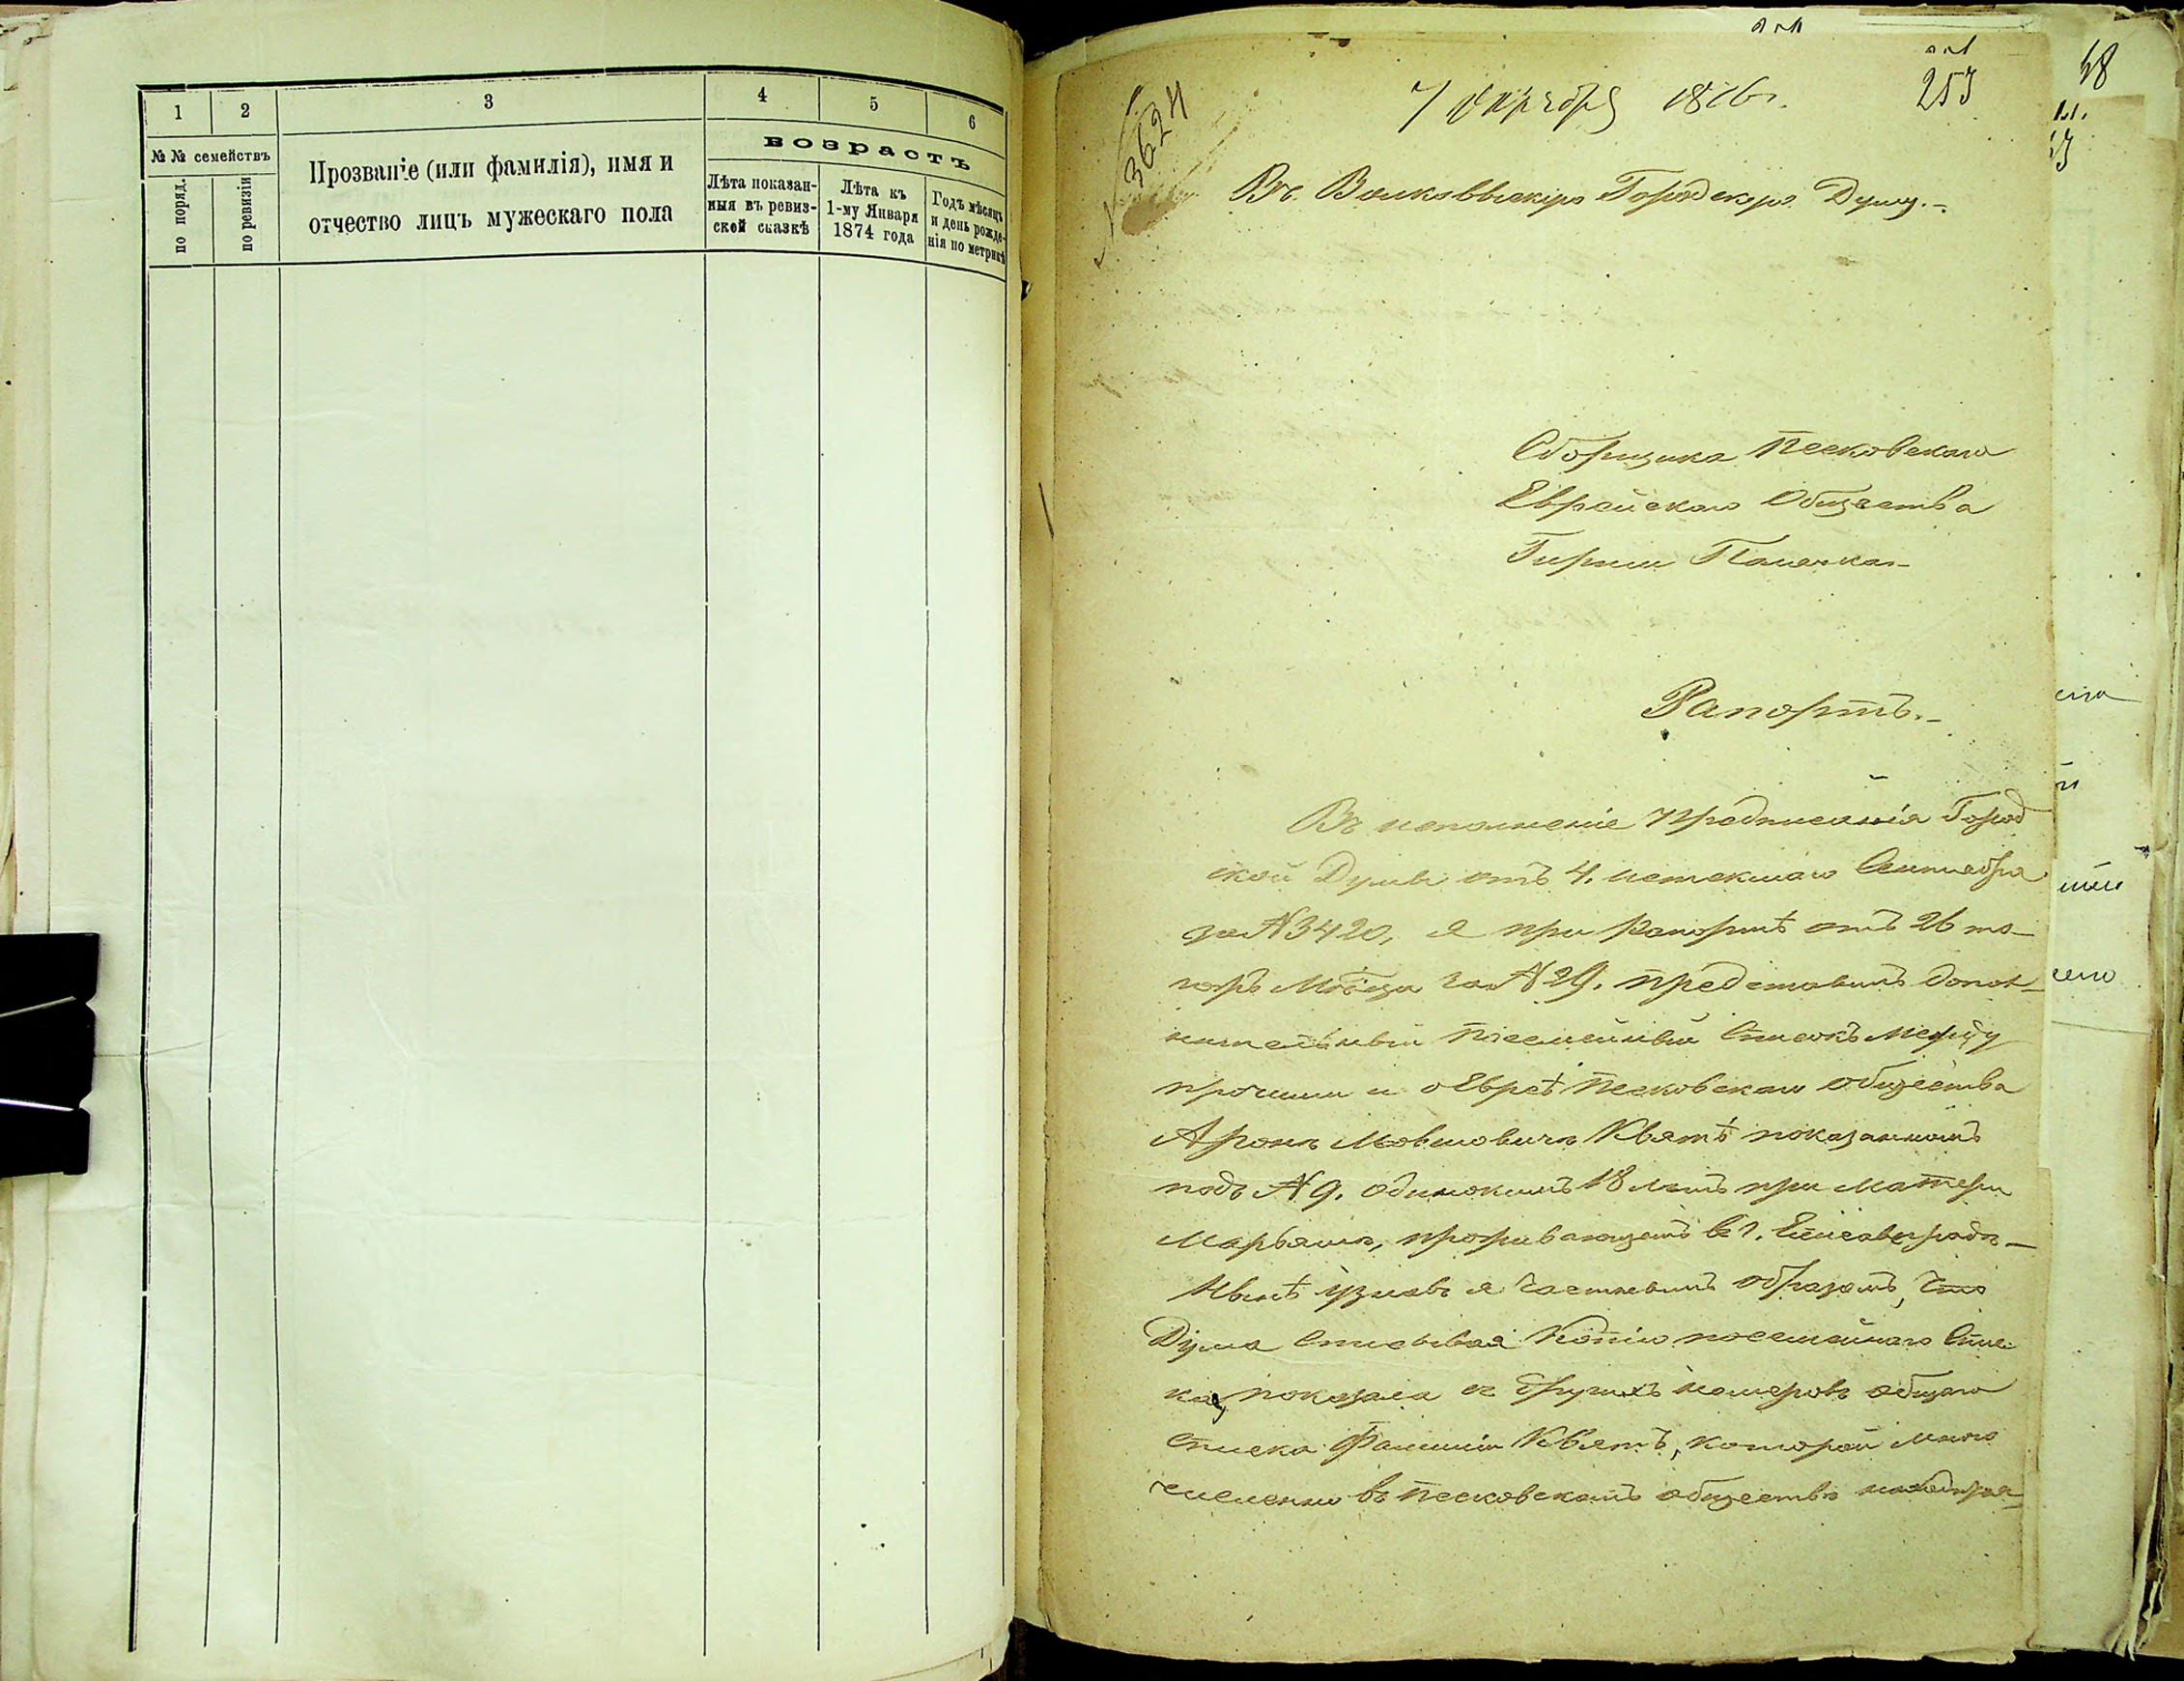 1 2 3 4 5 6
№ № семействъ
по поряд.
по ревизіи
Прозваніе (или фамилія), имя и
отчество лицъ мужескаго пола
возрастъ
Лѣта показан-
ныя въ ревиз-
ской сказкѣ
Лѣта къ
1-му Января
1874 года
Годъ мѣсяцъ
и день рожде-
нія по метрикѣ
7 Октября 1876 г.
253
58
№ 3624
Въ Волковыскую Городскую Думу.-
Сборщика Песковскаго
Еврейскаго Общества
Гирши
Рапортъ.-
Въ исполненіе предписанія Город
ской Думы отъ 4. истекшаго Сентября
за №3420, я при Рапортѣ отъ 26 то-
гожъ Мѣсяца за №29. представилъ допол-
нительный посемейный Списокъ между
прочими и о Евреѣ Песковскаго общества
Аронѣ Мовшовичѣ Квятѣ показанномъ
подъ №9. одинокимъ 18 лѣтъ при матери
Марьямѣ, проживающемъ въ г. Елисаветградѣ-
Нынѣ узнавъ я частнымъ образомъ, что
Дума списывая Копію посемейнаго Спис
ка, показала и другихъ номеровъ общаго
списка Фамиліи Квятъ, которой много
численно въ Песковскомъ обществѣ находится,